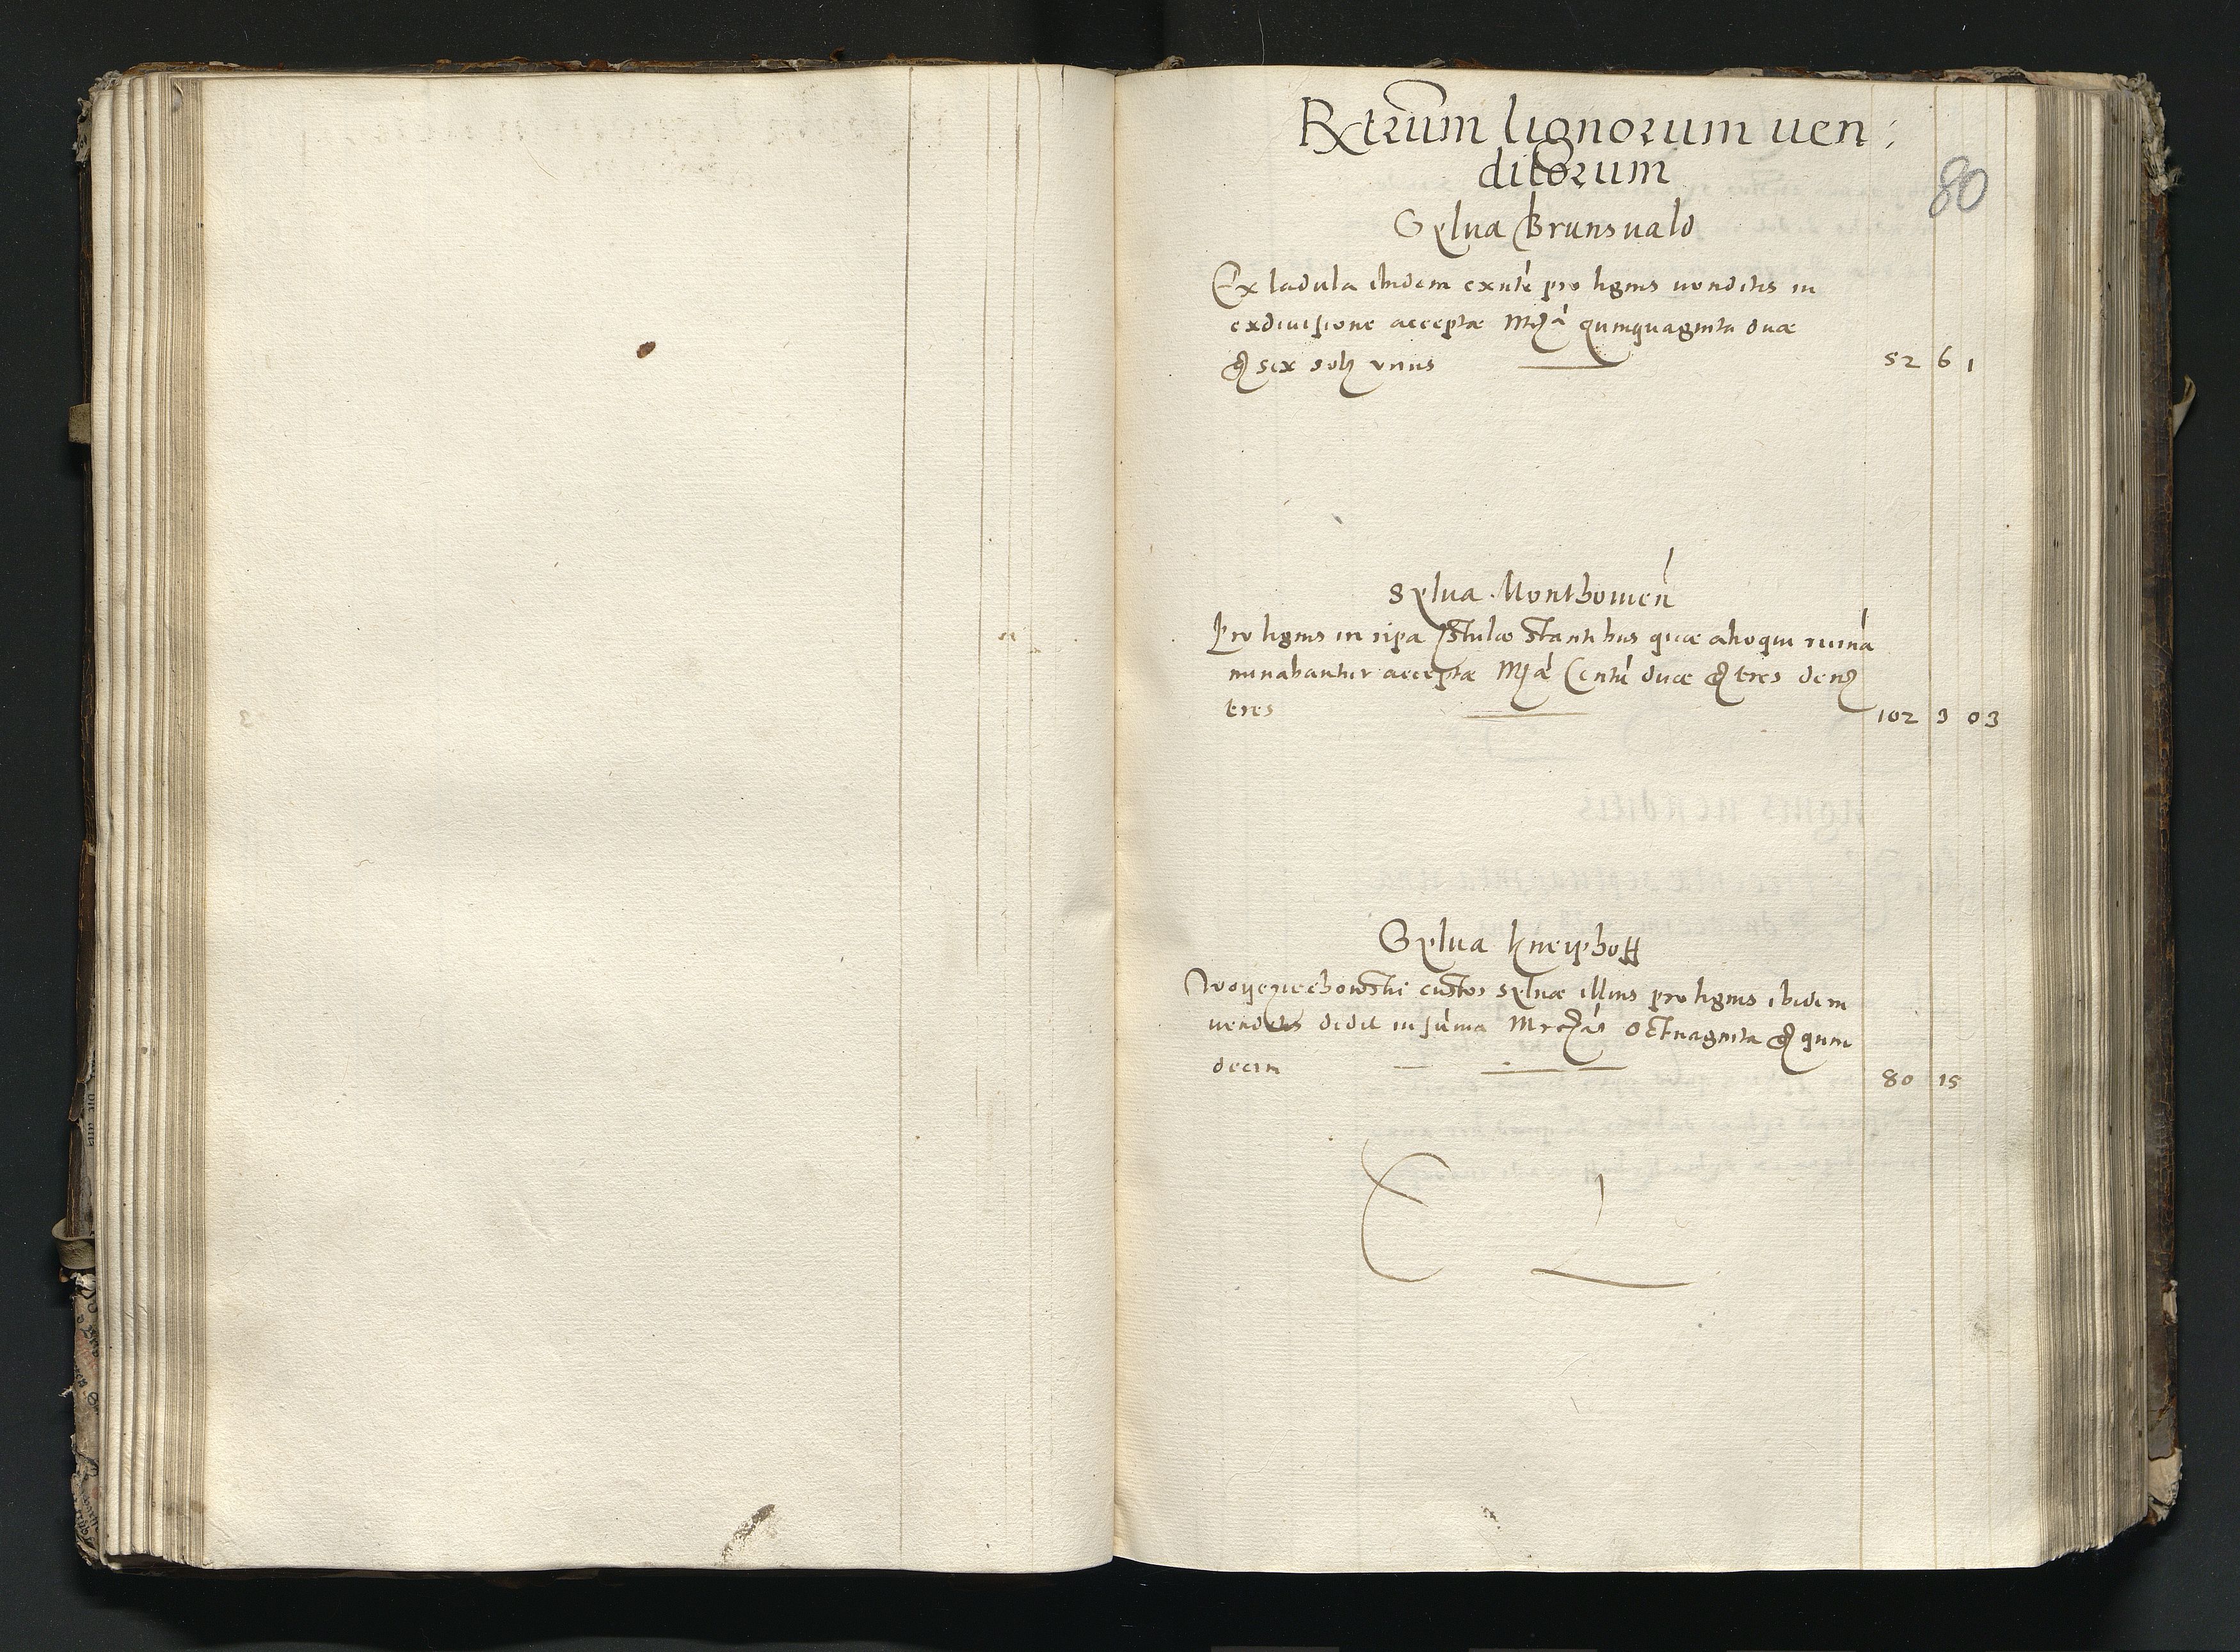 Rxtrum lignorum uen:
ditorum
80
Sylua Brunsuald
Ex ladula ibidem exnte pro lignis uenditis in
exdiuisione acceptae quinquaginta duae
g sex sol unus 52 6 1
Sylua Monthowen
Pro lignis in ripa Istulae stantibus quae alioqui ruina
minabantur acceptae Centu duae g tres den
tres 102 3 03
Sylua Kneiphoff
custos syluae illius pro lignis ibidem
uenditis dedit in suma octuaginta g quin
decim 80 15